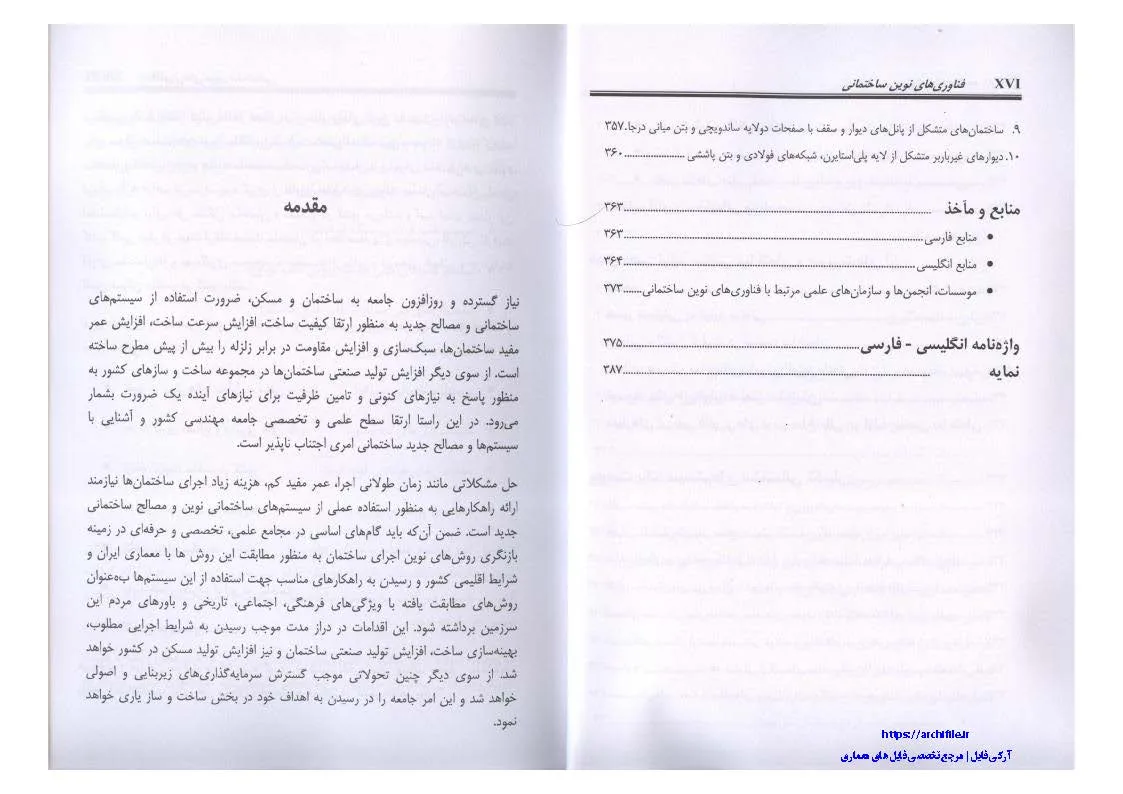 XVI فناوری‌های نوین ساختمانی
۹. ساختمان‌های متشکل از پانل‌های دیوار و سقف با صفحات دولایه ساندویچی و بتن میانی درجا.۳۵۷
۱۰.دیوارهای غیرباربر متشکل از لایه پلی‌استایرن، شبکه‌های فولادی و بتن پاششی ...................۳۶۰
منابع و مآخذ ................................................................................۳۶۳
• منابع فارسی................................................................................۳۶۳
• منابع انگلیسی..............................................................................۳۶۴
• موسسات، انجمن‌ها و سازمان‌های علمی مرتبط با فناوری‌های نوین ساختمانی.......۳۷۳
واژه‌نامه انگلیسی - فارسی...............................................................۳۷۵
نمایه ................................................................................۳۸۷
https://archifile.ir
آرکی فایل | مرجع تخصصی فایل های معماری
مقدمه
نیاز گسترده و روزافزون جامعه به ساختمان و مسکن، ضرورت استفاده از سیستم‌های
ساختمانی و مصالح جدید به منظور ارتقا کیفیت ساخت، افزایش سرعت ساخت، افزایش عمر
مفید ساختمان‌ها، سبک‌سازی و افزایش مقاومت در برابر زلزله را بیش از پیش مطرح ساخته
است. از سوی دیگر افزایش تولید صنعتی ساختمان‌ها در مجموعه ساخت و سازهای کشور به
منظور پاسخ به نیازهای کنونی و تامین ظرفیت برای نیازهای آینده یک ضرورت بشمار
می‌رود. در این راستا ارتقا سطح علمی و تخصصی جامعه مهندسی کشور و آشنایی با
سیستم‌ها و مصالح جدید ساختمانی امری اجتناب ناپذیر است.
حل مشکلاتی مانند زمان طولانی اجرا، عمر مفید کم، هزینه زیاد اجرای ساختمان‌ها نیازمند
ارائه راهکارهایی به منظور استفاده عملی از سیستم‌های ساختمانی نوین و مصالح ساختمانی
جدید است. ضمن آن‌که باید گام‌های اساسی در مجامع علمی، تخصصی و حرفه‌ای در زمینه
بازنگری روش‌های نوین اجرای ساختمان به منظور مطابقت این روش ها با معماری ایران و
شرایط اقلیمی کشور و رسیدن به راهکارهای مناسب جهت استفاده از این سیستم‌ها به‌عنوان
روش‌های مطابقت یافته با ویژگی‌های فرهنگی، اجتماعی، تاریخی و باورهای مردم این
سرزمین برداشته شود. این اقدامات در دراز مدت موجب رسیدن به شرایط اجرایی مطلوب،
بهینه‌سازی ساخت، افزایش تولید صنعتی ساختمان و نیز افزایش تولید مسکن در کشور خواهد
شد. از سوی دیگر چنین تحولاتی موجب گسترش سرمایه‌گذاری‌های زیربنایی و اصولی
خواهد شد و این امر جامعه را در رسیدن به اهداف خود در بخش ساخت و ساز یاری خواهد
نمود.